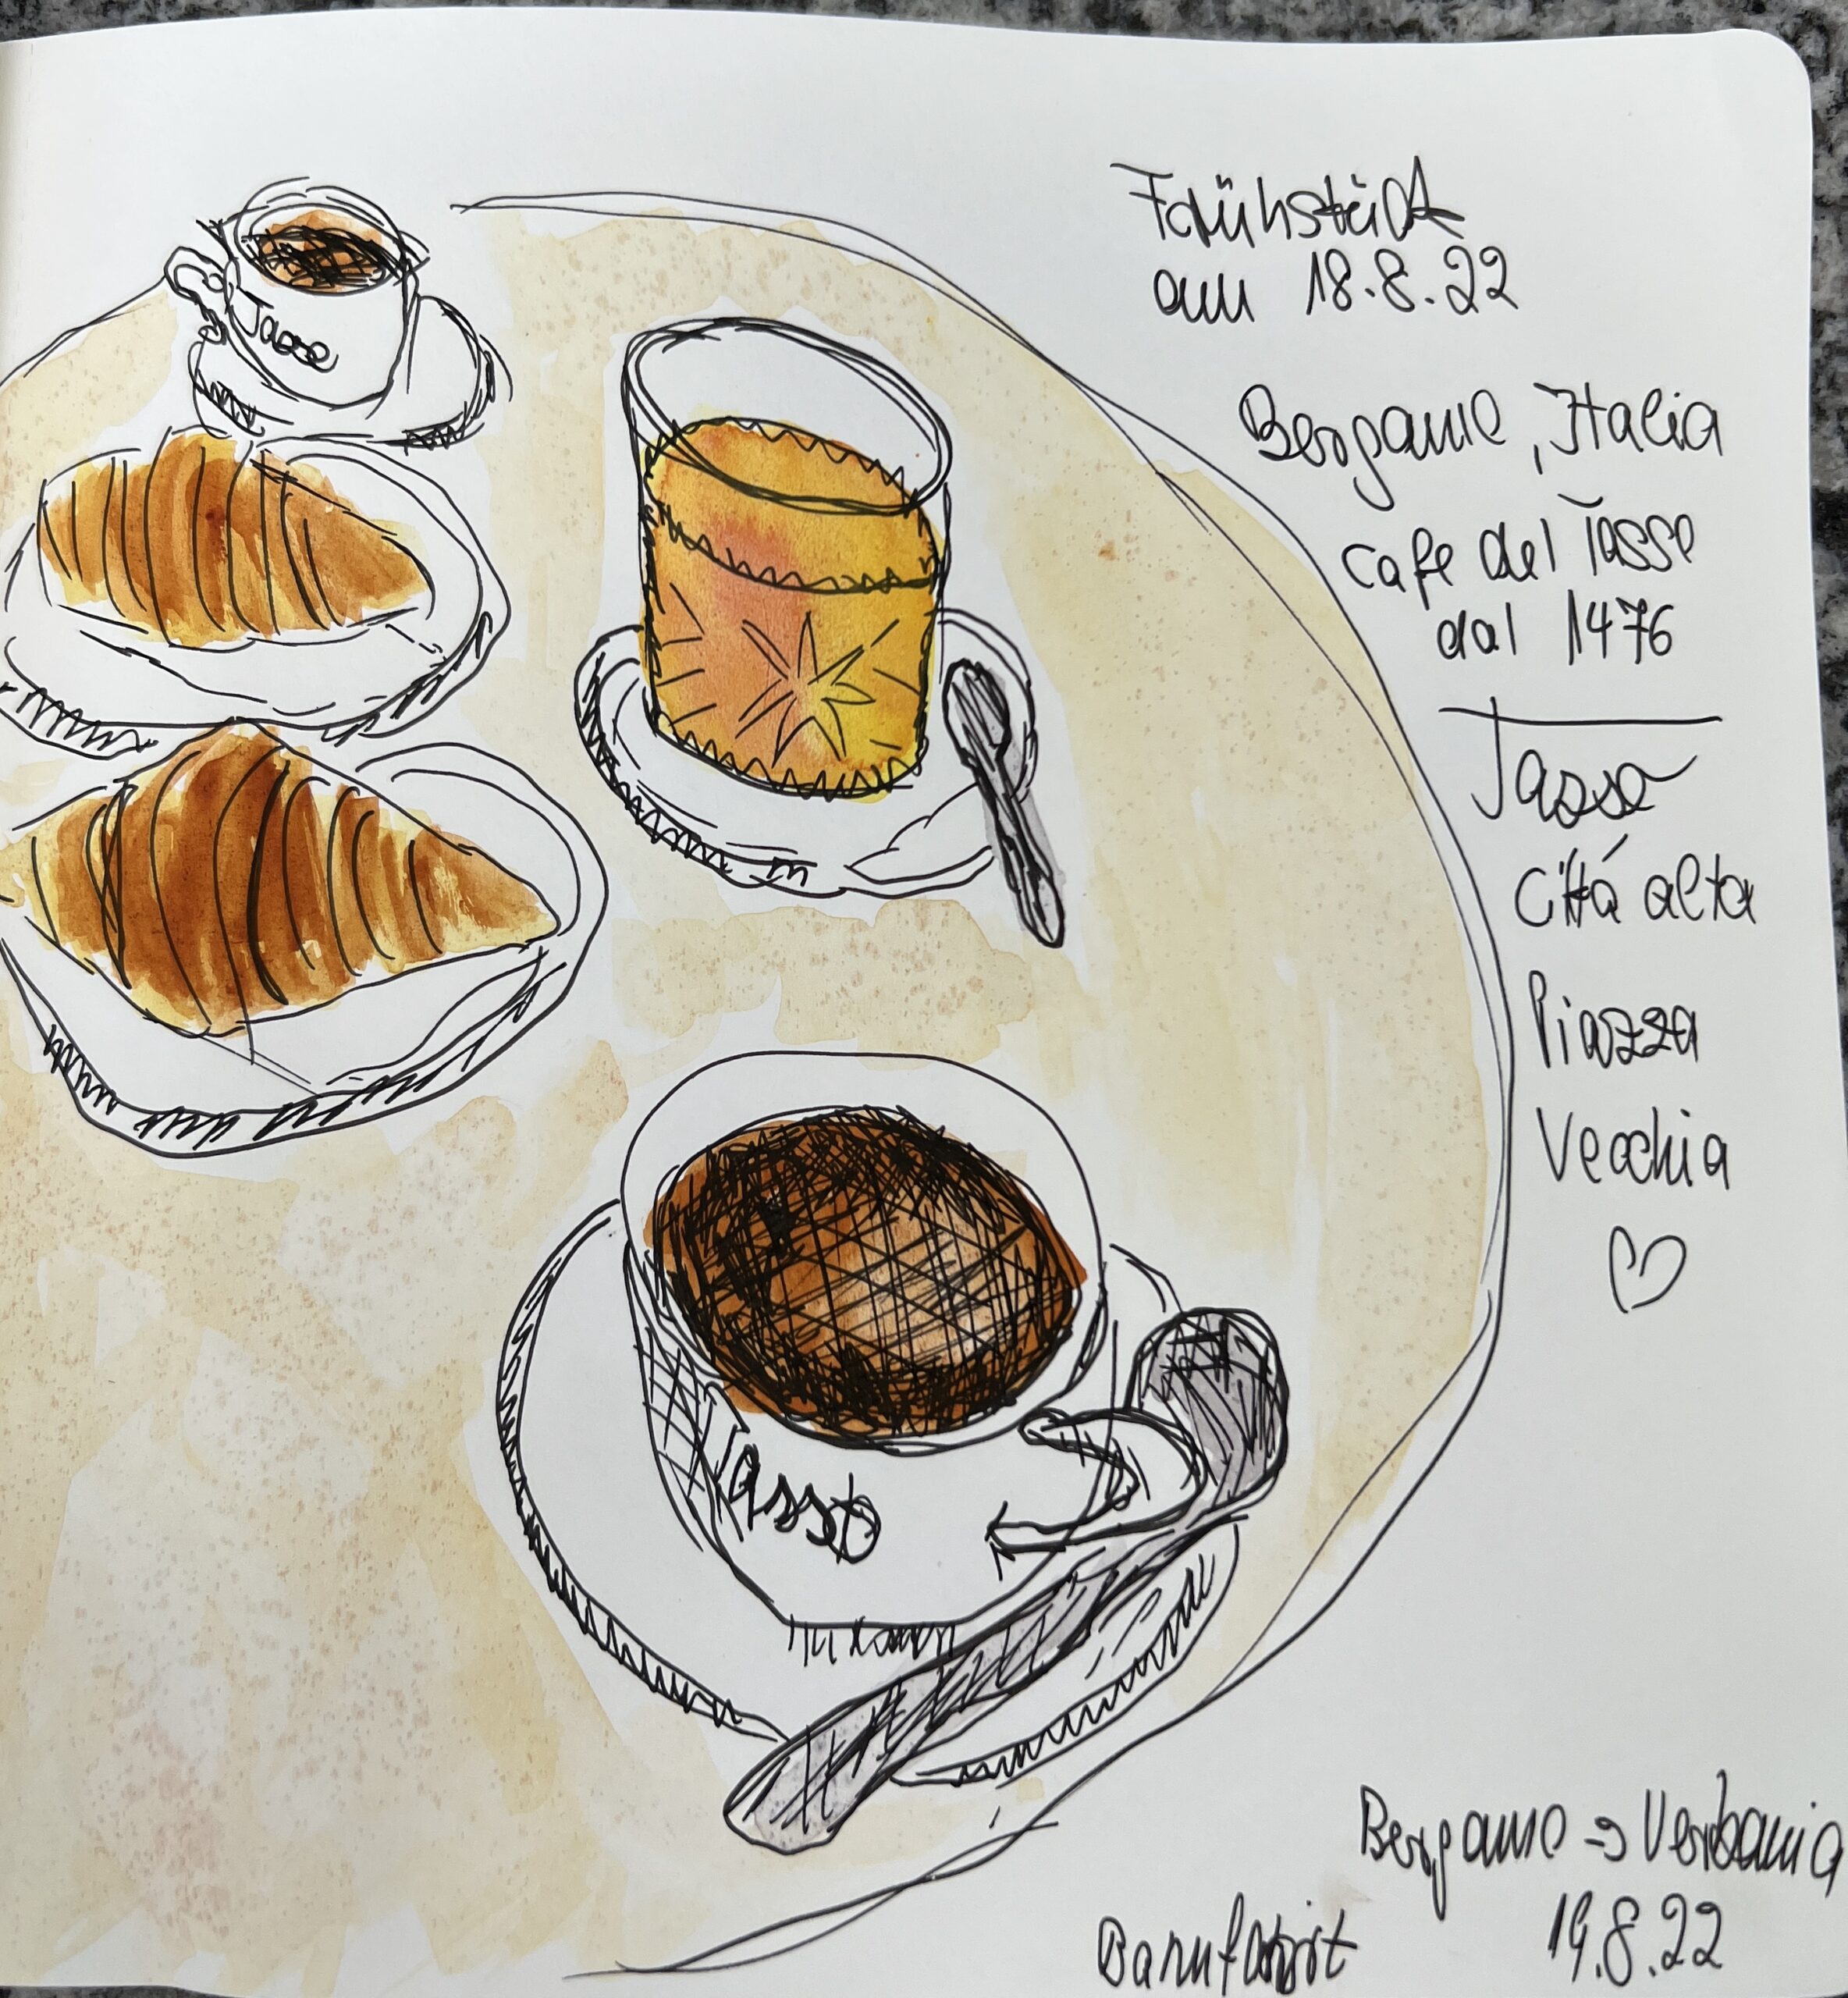 Tasso
Frühstück
am 18.8.22
Bergamo, Italia
Cafe del Tasso
dal 1476
Tasso
Cittá alta
Piazza
Vecchia
Tasso
Bergamo → Verbania
Bahnfahrt 19.8.22